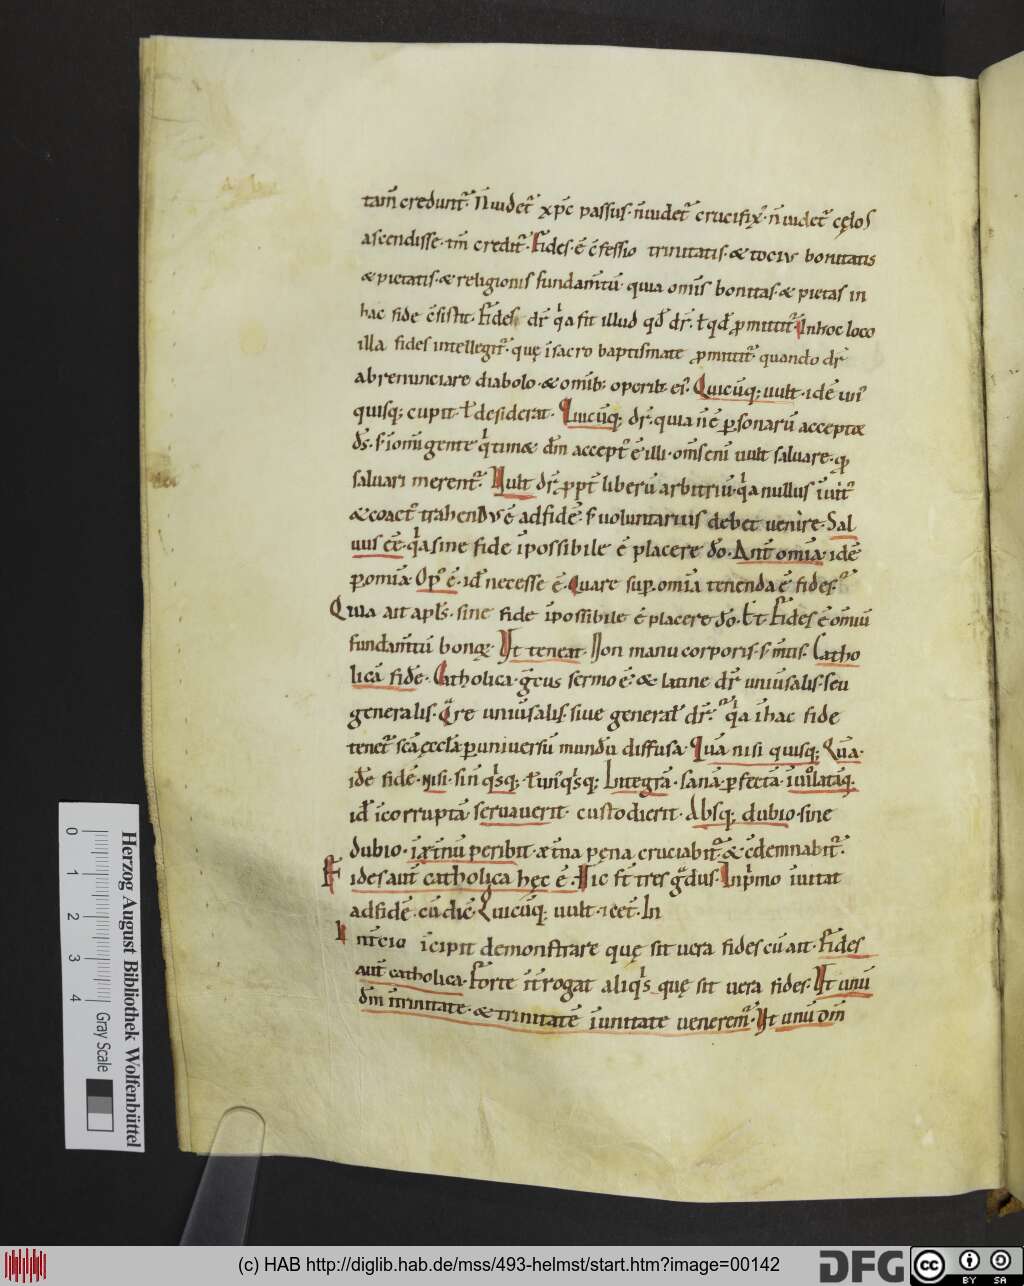 tam̄ creduntᷣ. N̄ uidetᷣ xp̄c passus. n̄ uidetᷣ crucifix᾽. n̄ uidetᷣ cęlos
ascendisse. tm̄ creditᷣ. Fides. ē c̄fessio trinitatis. & tocius bonitatis
& pietatis. & religionis fundam̄tū. quia om̄is bonitas. & pietas in
hac fide c̄sistit. Fides dr̄ qͥa fit illud qd̄ dr̄. ł qd̄ ꝓmittitᷣ. In hoc loco
illa fides intellegitᷣ. quę ī sacro baptismate ꝓmittitᷣ. quando dr̄
abrenunciare diabolo. & omīb; operib; ei᾽. Quicūq; uult. idē un᾽
quisq; cupit. ł desiderat. Quicūq; dr̄. quia n̄ ē ꝑsonarū acceptor
ds̄. s; ī omī gente qͥ timæ dm̄ accept᾽ ē illi. om̄s eni uult saluare. qͥ
saluari merentᷣ. Uult dr̄. ꝓpt̄ liberū arbitriū. qͥa nullus īuit᾽
& coact᾽ trahendus ē ad fidē. s; uoluntarius debet uenire. Sal
uus eē. qͥa sine fide īpossibile ē placere dō. Ant̄ omīa. idē
ꝑ omīa. Op᾽ ē. id ē necesse ē. Quare suꝑ omīa tenenda ē fides?
Quia ait apl̄s. sine fide īpossibile ē placere dō. Et. Fides ē omīū
fundam̄tū bonoꝝ. Ut teneat. Non manu corporis. s; m̄tis. Catho
licā fidē. Catholica. grecus sermo ē. & latine dr̄ uniūsalis. seu
generalis. Qͣre uniūsalis. siue general᾽ dr̄? qͥa ī hac fide
tenetᷣ scā ęcclā. ꝑ uniuersū mundū diffusa. Quā nisi quisq; Quā.
idē fidē. nisi. sin̄ qͥsq; ł unͥqͥsq; Integrā. sanā. ꝑfectā. īuiolatāq;
id ē īcorruptā. seruauerit. custodierit. Absq; dubio. sine
dubio. ī æt̄nū peribit. æt̄na pęna cruciabitᷣ. & c̄demnabitᷣ.
Fides aut̄ catholica hęc ē. Hic st̄ tres gͣdus. In pͥmo īuitat
ad fidē. cū dic̄. Quicūq; uult. & cet̄. In
In t̄cio īcipit demonstrare quę sit uera fides cū ait. Fides
aut̄ catholica. Forte īt̄rogat aliqͥs quę sit uera fides. Ut unū
dm̄ ī trinitate. & trinitatē ī unitate ueneremᷣ. Ut unū om̄
Herzog August Bibliothek Wolfenbüttel
0 1 2 3 4
Gray Scale
(c) HAB http://diglib.hab.de/mss/493-helmst/start.htm?image=00142
DFG
cc BY SA